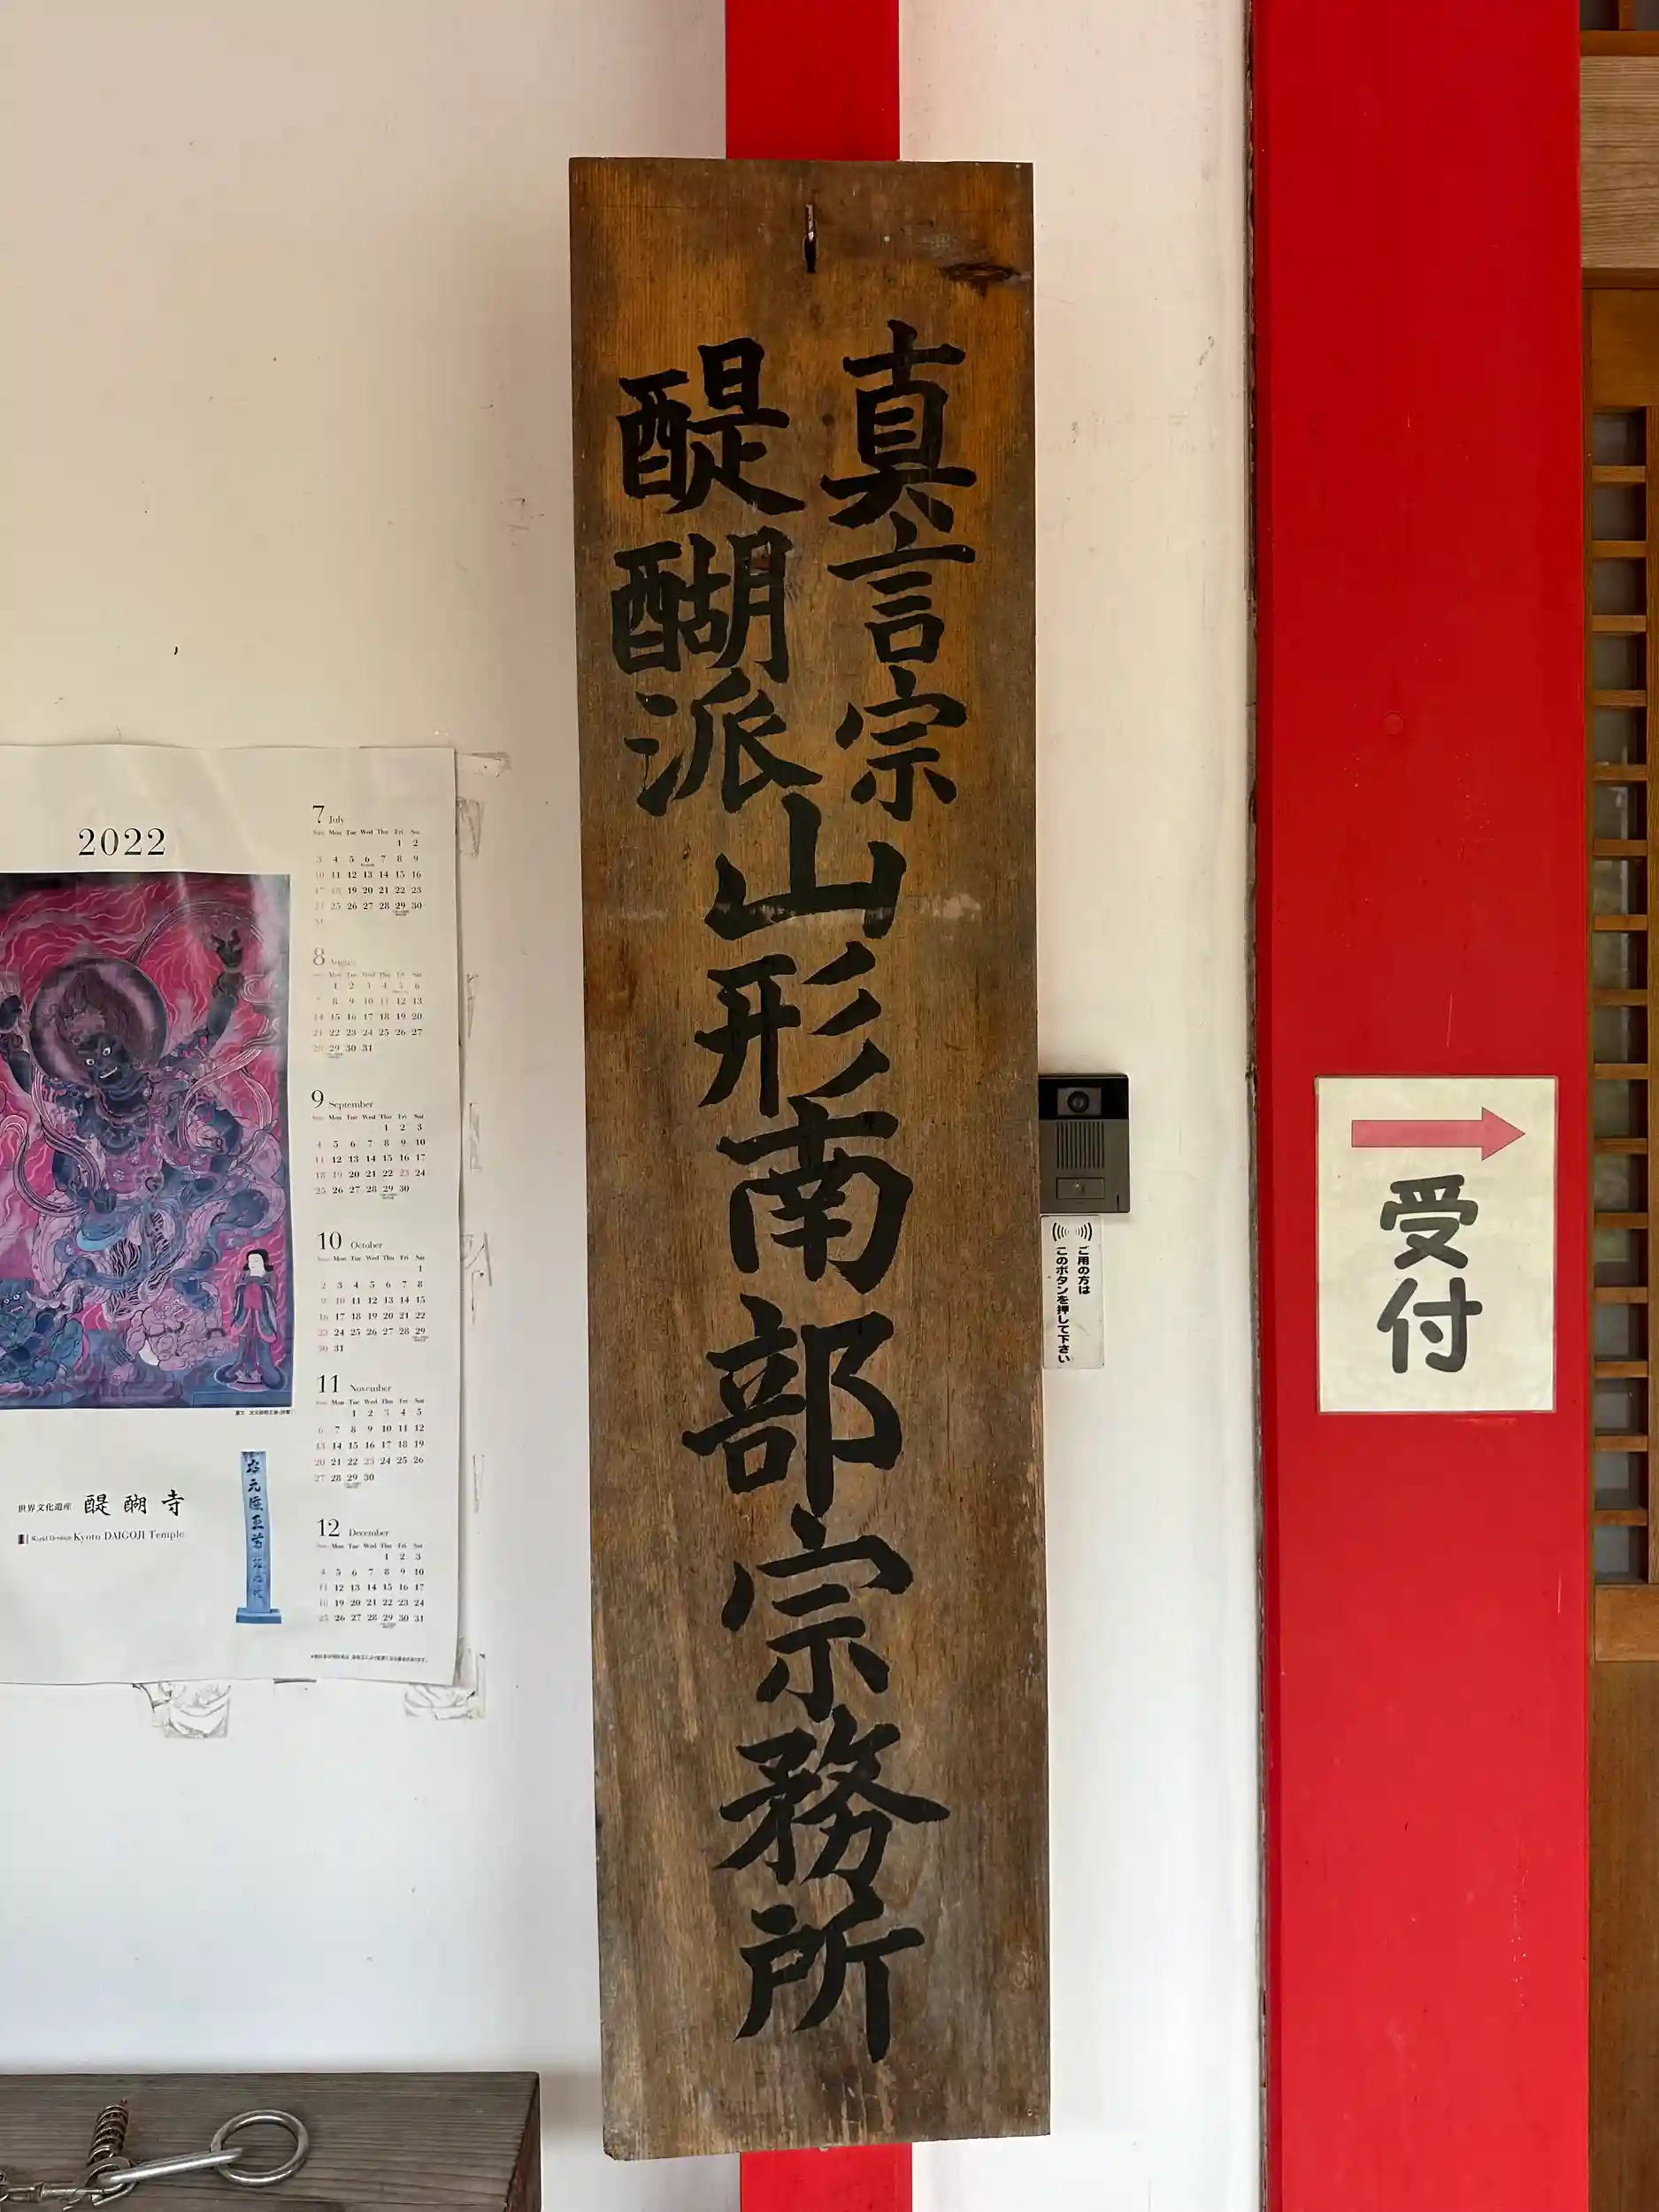 真言宗
醍醐派
山形南部宗務所
受付
ご用の方は
このボタンを押して下さい
2022
7 July
Mon Tue Wed Thu Fri Sat
1 2
3 4 5 6 7 8 9
10 11 12 13 14 15 16
17 18 19 20 21 22 23
25 26 27 28 29 30
31
8 August
Mon Tue Wed Thu Fri Sat
1 2 3 4 5 6
7 8 9 10 11 12 13
14 15 16 17 18 19 20
21 22 23 24 25 26 27
28 29 30 31
9 September
Mon Tue Wed Thu Fri Sat
1 2 3
4 5 6 7 8 9 10
11 12 13 14 15 16 17
18 19 20 21 22 23 24
25 26 27 28 29 30
10 October
Mon Tue Wed Thu Fri Sat
1
2 3 4 5 6 7 8
9 10 11 12 13 14 15
16 17 18 19 20 21 22
23 24 25 26 27 28 29
30 31
11 November
Mon Tue Wed Thu Fri Sat
1 2 3 4 5
6 7 8 9 10 11 12
13 14 15 16 17 18 19
20 21 22 23 24 25 26
27 28 29 30
12 December
Mon Tue Wed Thu Fri Sat
1 2 3
4 5 6 7 8 9 10
11 12 13 14 15 16 17
18 19 20 21 22 23 24
25 26 27 28 29 30 31
世界文化遺産 醍醐寺
World Heritage Kyoto DAIGOJI Temple